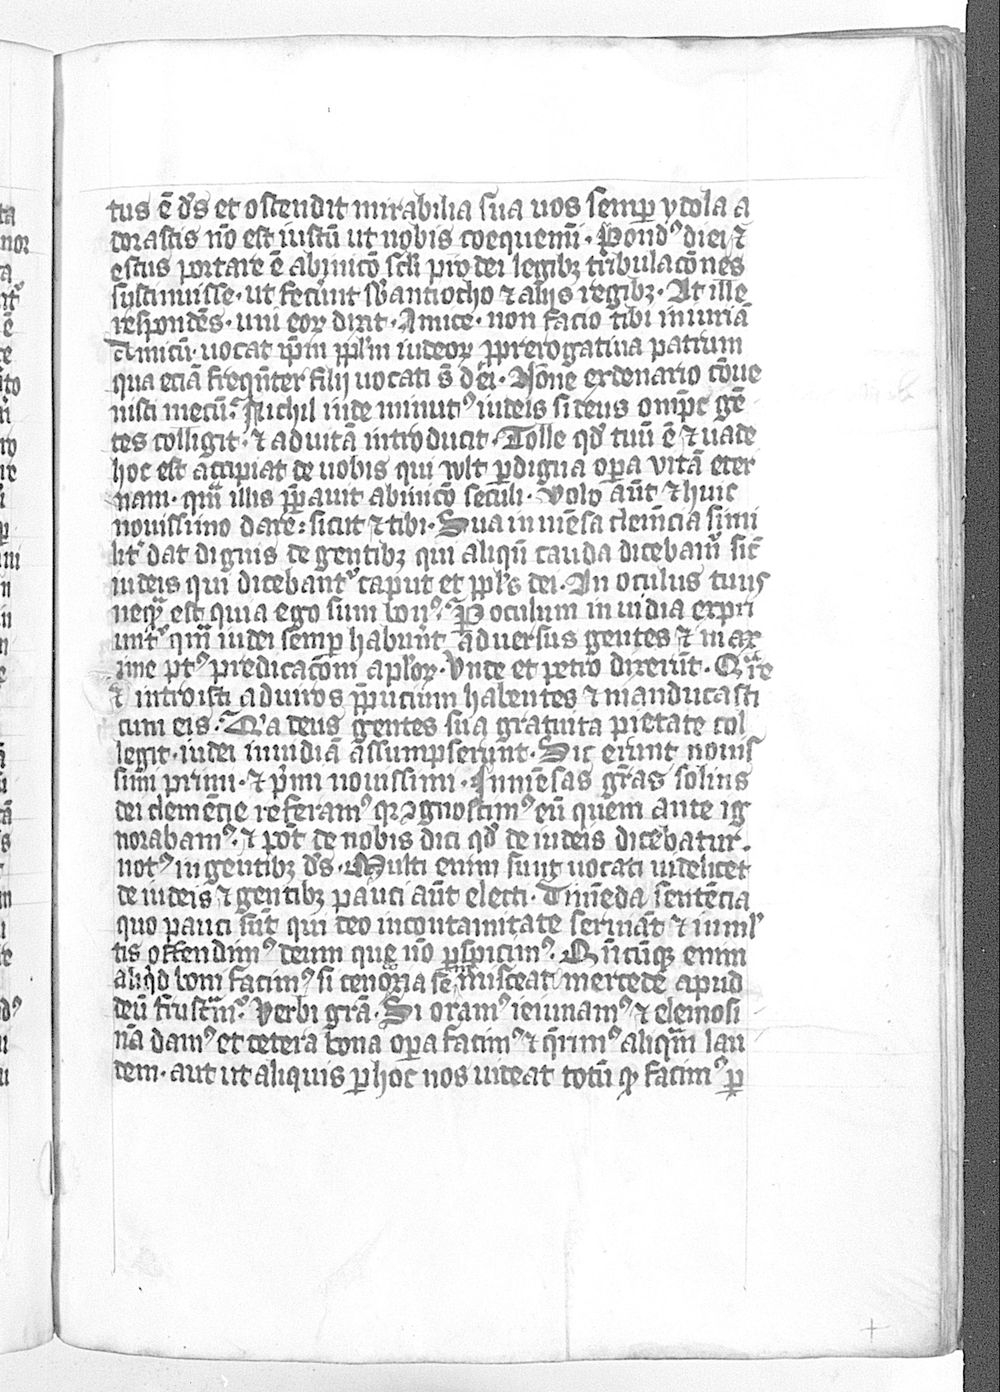 tus ē ds̄ et ostendit mirabilia sua uos semꝑ ydola a
dorastis nō est iustū ut nobis coequemī · Pondꝰ diei ⁊
estus portare ē ab inicō scl̄i pro dei legibꝫ tribulacōnes
sustinuisse · ut fecunt sb̄ antiocho ⁊ alijs regibꝫ · At ille
respondēs · uni eoꝝ dixit · Amice · non facio tibi iniuriā
Amicū · uocat ip̄m ppl̄m iudeoꝝ ꝑ prerogatiua patrum
qua eciā freqn̄ter filij uocati s̄ dei · Nōne ex denario cōue
nisti mecū · Nichil inde minutꝰ iudeis si deus om̄ps gē
tes colligit · ⁊ ad uitā introducit · Tolle qd̄ tuū ē ⁊ uade
hoc est accipiat de uobis qui wlt ꝑ digna oꝑa vitā eter
nam · qm̄ illis p̄pauit ab inicō seculi · Volo aūt ⁊ huic
nouissimo dare : sicut ⁊ tibi · Sua inmēsa clemēcia simi
lit᷑ dat dignis de gentibꝫ qui aliqn̄ cauda dicebant᷑ sic̄
iudeis qui dicebant᷑ caput et ppl̄s dei · An oculus tuus
neqꝫ est quia ego sum bonꝰ · P oculum inuidia expri
unt᷑ qm̄ iudei semꝑ habuīt aduersus gentes ⁊ max
ime ptꝰ predicacōm apl̄oꝝ · Vnde et petro dixerūt · Qͣre
⁊ introisti ad uiros p̄pucium habentes ⁊ manducasti
cum eis · Qͥa deus gentes sua gratuita pietate col
legit · iudei inuidiā assumpserunt · Sic erunt nouis
simi primi · ⁊ p̄mi nouissimi · Inmēsas grās solius
dei clemēcie referamꝰ qꝛ ꝯgnoscimꝰ eū quem ante ig
norabamꝰ · ⁊ pōt de nobis dici qd̄ de iudeis dicebatur ·
notꝰ in gentibꝫ ds̄ · Multi enim sunt uocati uidelicet
de iudeis ⁊ gentibꝫ pauci aūt electi · Timēda sentēcia
quo pauci sūt qui deo incontaminate seruiāt ⁊ in ml̄
tis offendimꝰ deum que nō ꝑspicimꝰ · Qn̄cūqꝫ enim
aliqd̄ boni facimꝰ si cenodoxia se īmisceat mercedē apud
deū frustramꝰ · Verbi grā · Si oramꝰ ieiunamꝰ ⁊ elemosi
nā damꝰ et cetera bona oꝑa facimꝰ ⁊ q̄rimꝰ aliquam lau
dem · aut ut aliquis ꝑ hoc nos uideat totū qd̄ facimꝰ ꝑ